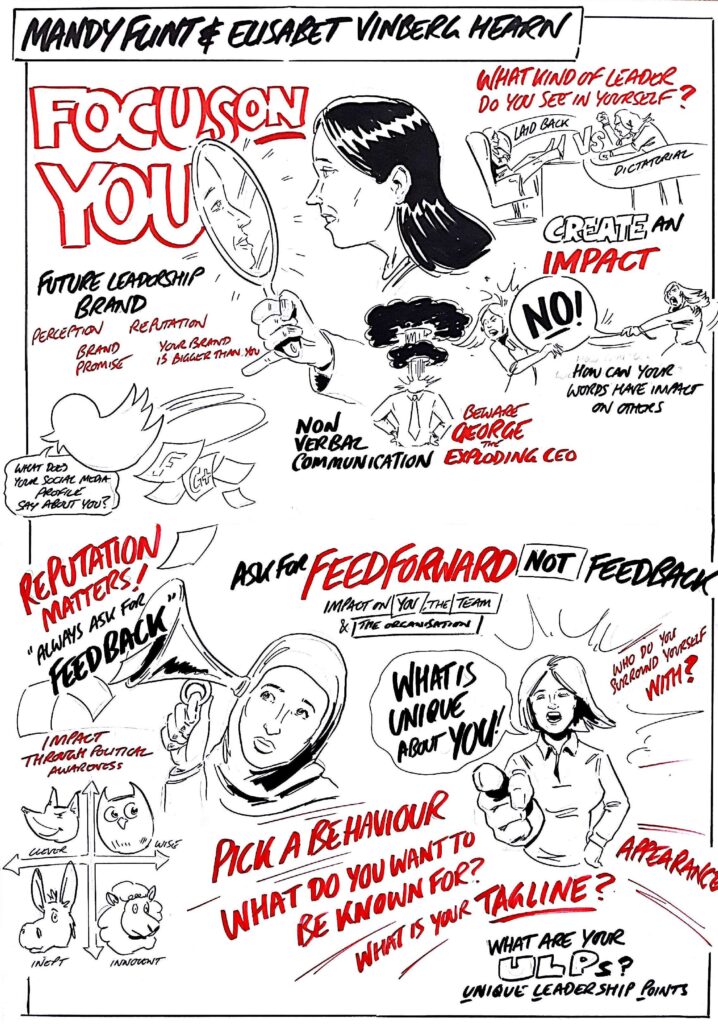 MANDY FLINT & ELISABET VINBERG HEARN
FOCUS ON
YOU
WHAT KIND OF LEADER
DO YOU SEE IN YOURSELF?
LAID BACK
VS
DICTATORIAL
CREATE AN
IMPACT
NO!
HOW CAN YOUR
WORDS HAVE IMPACT
ON OTHERS
FUTURE LEADERSHIP
BRAND
PERCEPTION
REPUTATION
BRAND
PROMISE
YOUR BRAND
IS BIGGER THAN YOU
NON
VERBAL
COMMUNICATION
BEWARE
GEORGE
THE
EXPLODING CEO
WHAT DOES
YOUR SOCIAL MEDIA
PROFILE
SAY ABOUT YOU?
G+
REPUTATION
MATTERS!
"ALWAYS ASK FOR
FEEDBACK"
ASK FOR FEEDFORWARD NOT FEEDBACK
IMPACT ON YOU, THE TEAM
& THE ORGANISATION
WHAT IS
UNIQUE
ABOUT YOU!
WHO DO YOU
SURROUND YOURSELF
WITH?
IMPACT
THROUGH POLITICAL
AWARENESS
CLEVER
WISE
INEPT
INNOCENT
PICK A BEHAVIOUR
WHAT DO YOU WANT TO
BE KNOWN FOR?
WHAT IS YOUR TAGLINE?
APPEARANCE
WHAT ARE YOUR
ULPs?
UNIQUE LEADERSHIP POINTS